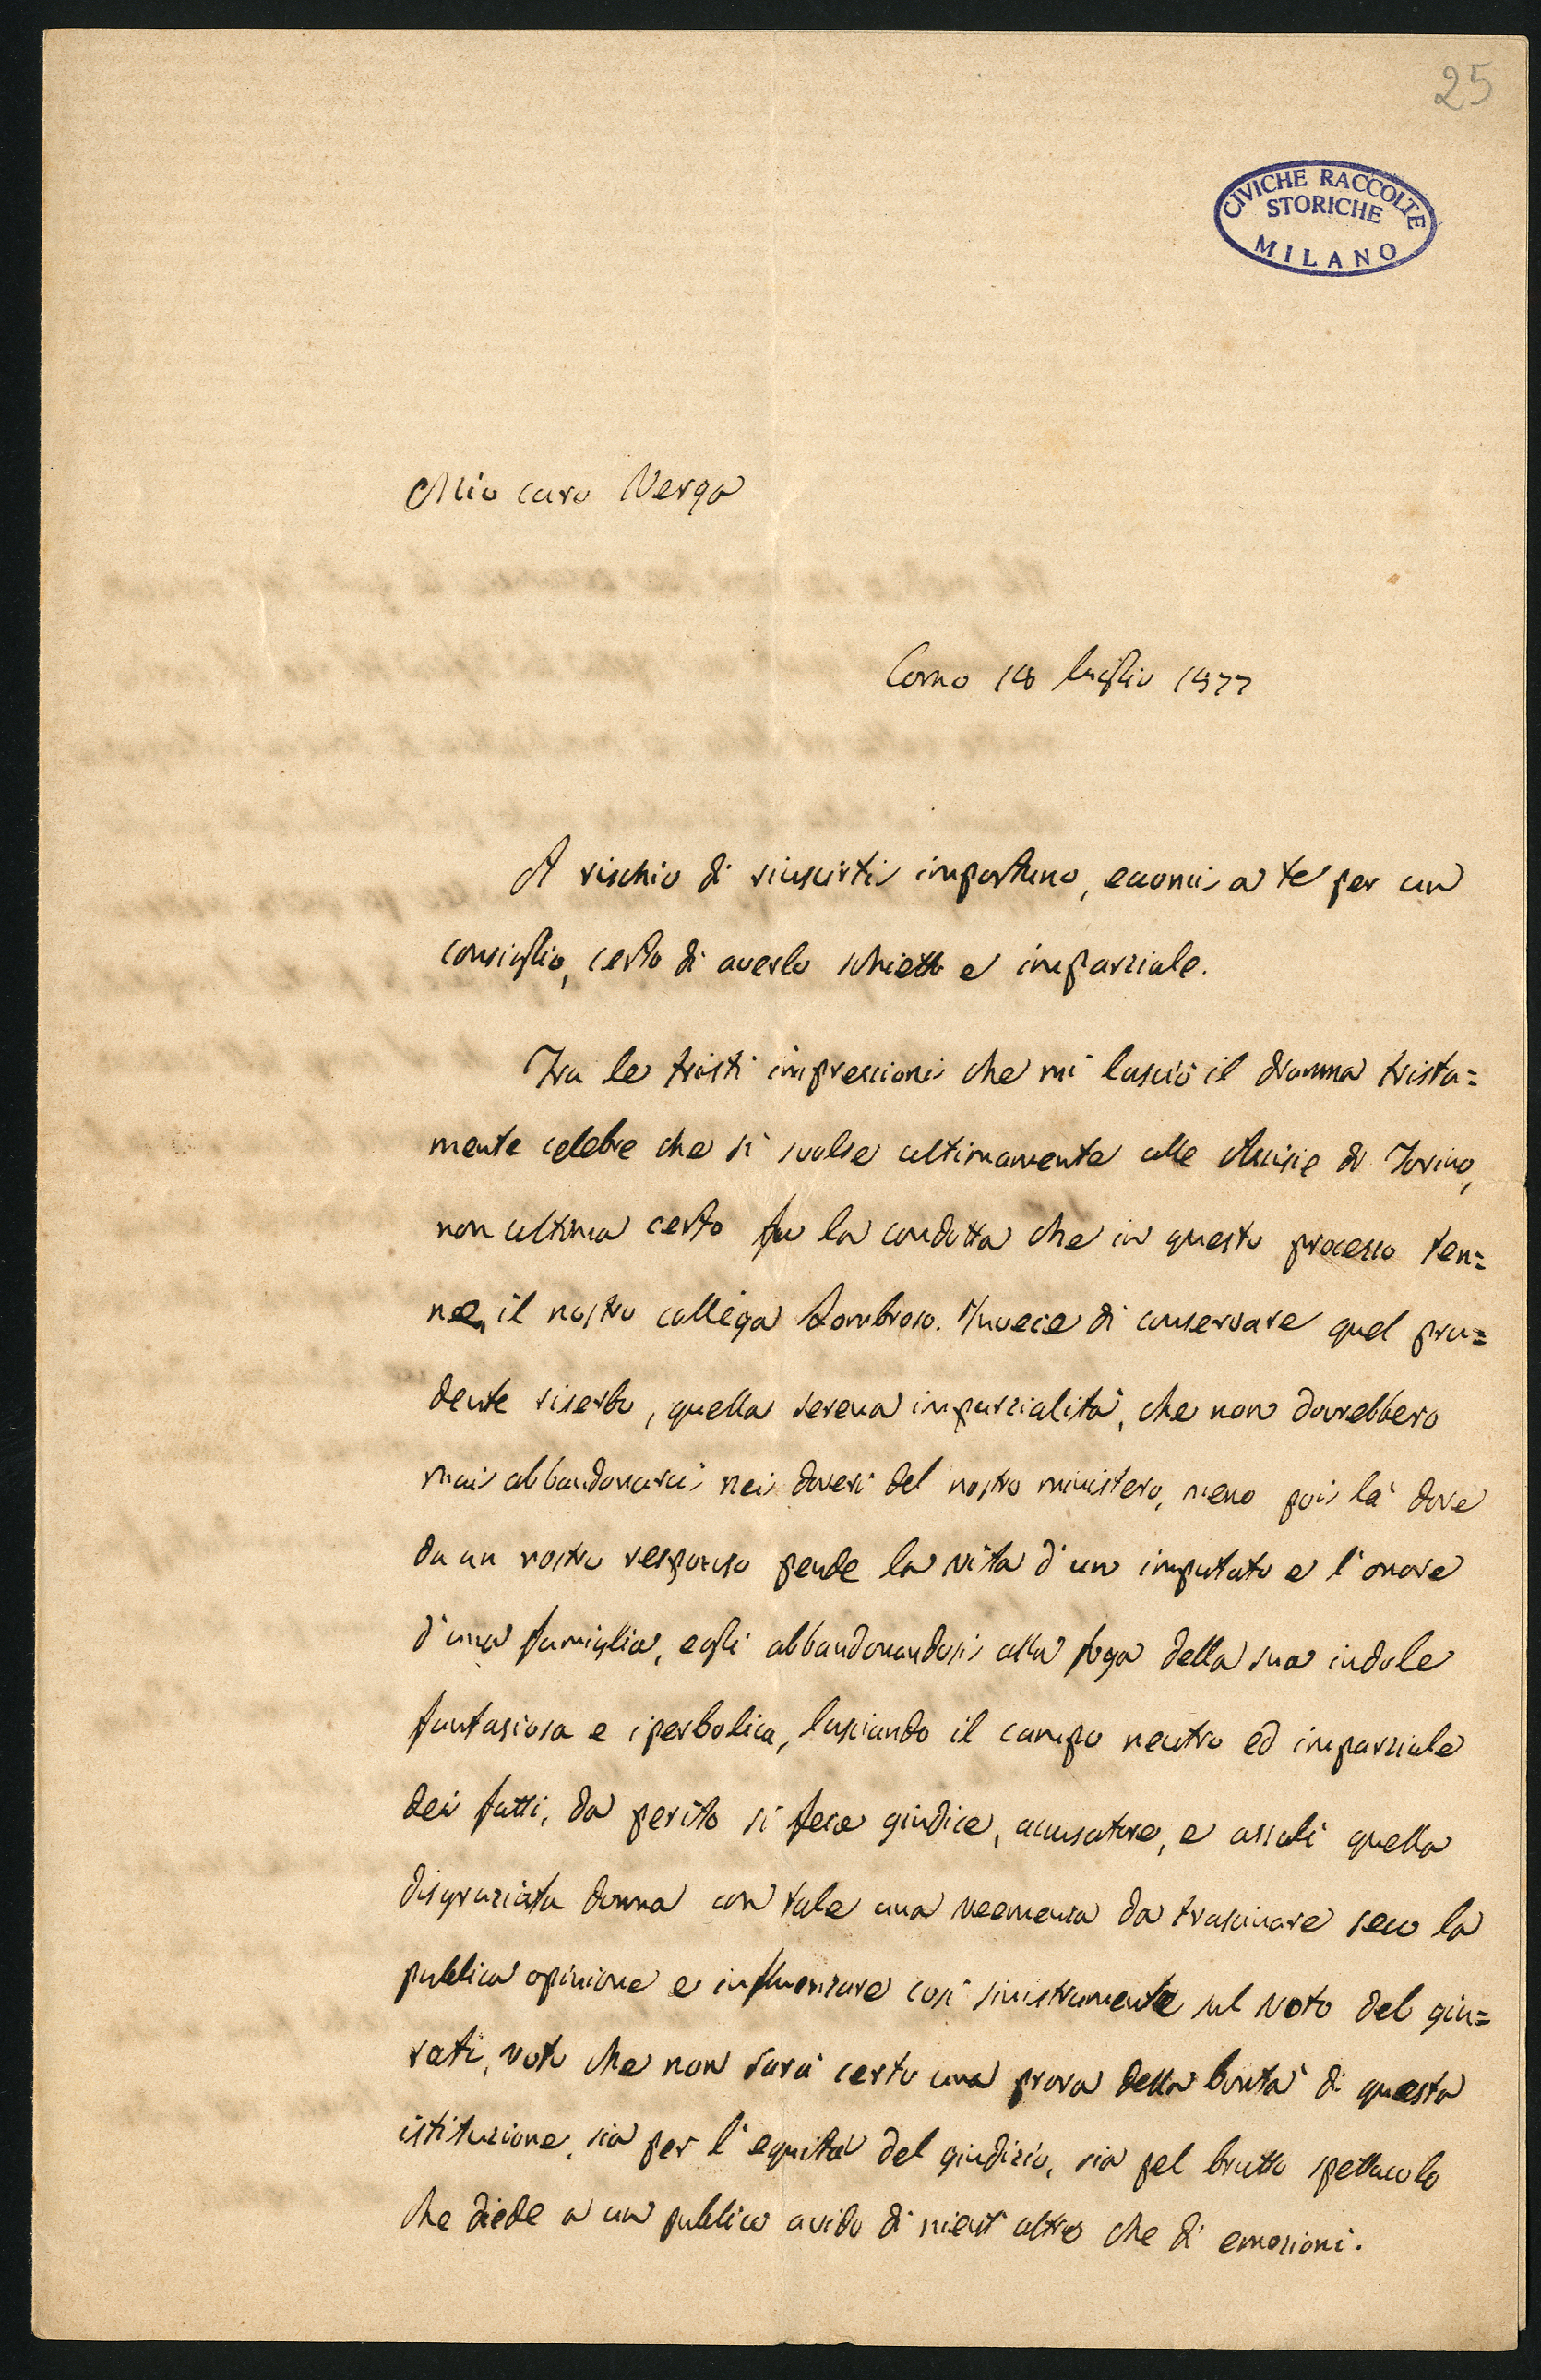 25
CIVICHE RACCOLTE
STORICHE
MILANO
Mio caro Verga
Como 18 luglio 1877
A rischio di riuscirti importuno, eccomi a te per un
consiglio, certo di averlo schietto e imparziale.
Tra le tristi impressioni che mi lasciò il dramma trista=
mente celebre che si svolse ultimamente alle Assisie di Torino,
non ultima certo fu la condotta che in questo processo ten=
ne, il nostro collega Lombroso. Invece di conservare quel pru=
dente riserbo, quella serena imparzialità, che non dovrebbero
mai abbandonarci nei doveri del nostro ministero, meno poi là dove
da un nostro responso pende la vita d'un imputato e l'onore
d'una famiglia, egli abbandonandosi alla foga della sua indole
fantasiosa e iperbolica, lasciando il campo neutro ed imparziale
dei fatti, da perito si fece giudice, accusatore, e assalì quella
disgraziata donna con tale una veemenza da trascinare seco la
publica opinione e influenzare così sinistramente sul voto del giu=
rati, voto che non sarà certo una prova della bontà di questa
istituzione, sia per l'equità del giudizio, sia pel brutto spettacolo
che diede a un publico avido di nient'altro che di emozioni.